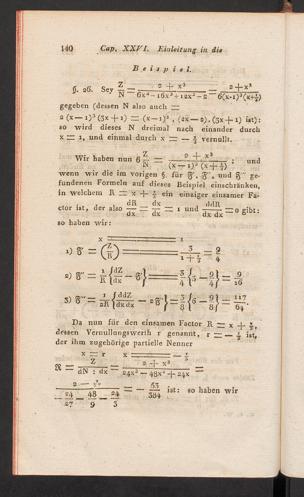 140 Cap. XXVI. Einleitung in die
Beispiel.
§. 26. Sey Z/N = (2 + x³)/(6x⁴ − 16x³ + 12x² − 2) = (2 + x³)/(6(x−1)³(x+⅓))
gegeben (dessen N also auch =
2 (x − 1)³ (3x + 1) = (x − 1)³ . (2x − 2) . (3x + 1) ist):
so wird dieses N dreimal nach einander durch
x = 1, und einmal durch x = − ⅓ vernullt.
Wir haben nun 6 Z/N = (2 + x³)/((x − 1)³ (x + ⅓)) ; und
wenn wir die im vorigen §. für 𝔉′, 𝔉″, und 𝔉‴ ge-
fundenen Formeln auf dieses Beispiel einschränken,
in welchem R = x + ⅓ ein einsiger einsamer Fa-
ctor ist, der also dR/dx = dx/dx = 1 und ddR/dx = 0 gibt:
so haben wir:
x = 1
1) 𝔉′ = (Z/R) = 3/(1 + ⅓) = 9/4
2) 𝔉″ = 1/R {dZ/dx − 𝔉′} = 3/4 {3 − 9/4} = 9/16
3) 𝔉‴ = 1/2R {ddZ/dx − 2𝔉″} = 3/8 {6 − 9/8} = 117/64
Da nun für den einsamen Factor R = x + ⅓,
dessen Vernullungswerth r genannt, r = − ⅓ ist,
der ihm zugehörige partielle Nenner
x = r x = − ⅓
𝔑 = Z/(dN : dx) = (2 + x³)/(24x³ − 48x² + 24x) =